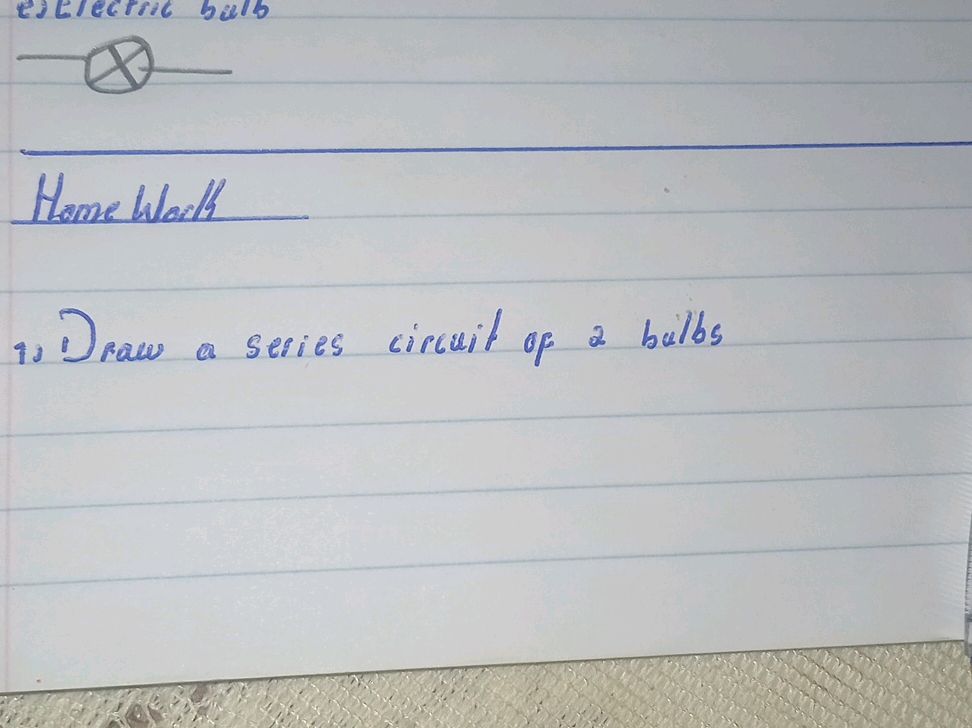 e) Electric bulb
Home Work
1) Draw a series circuit of 2 bulbs